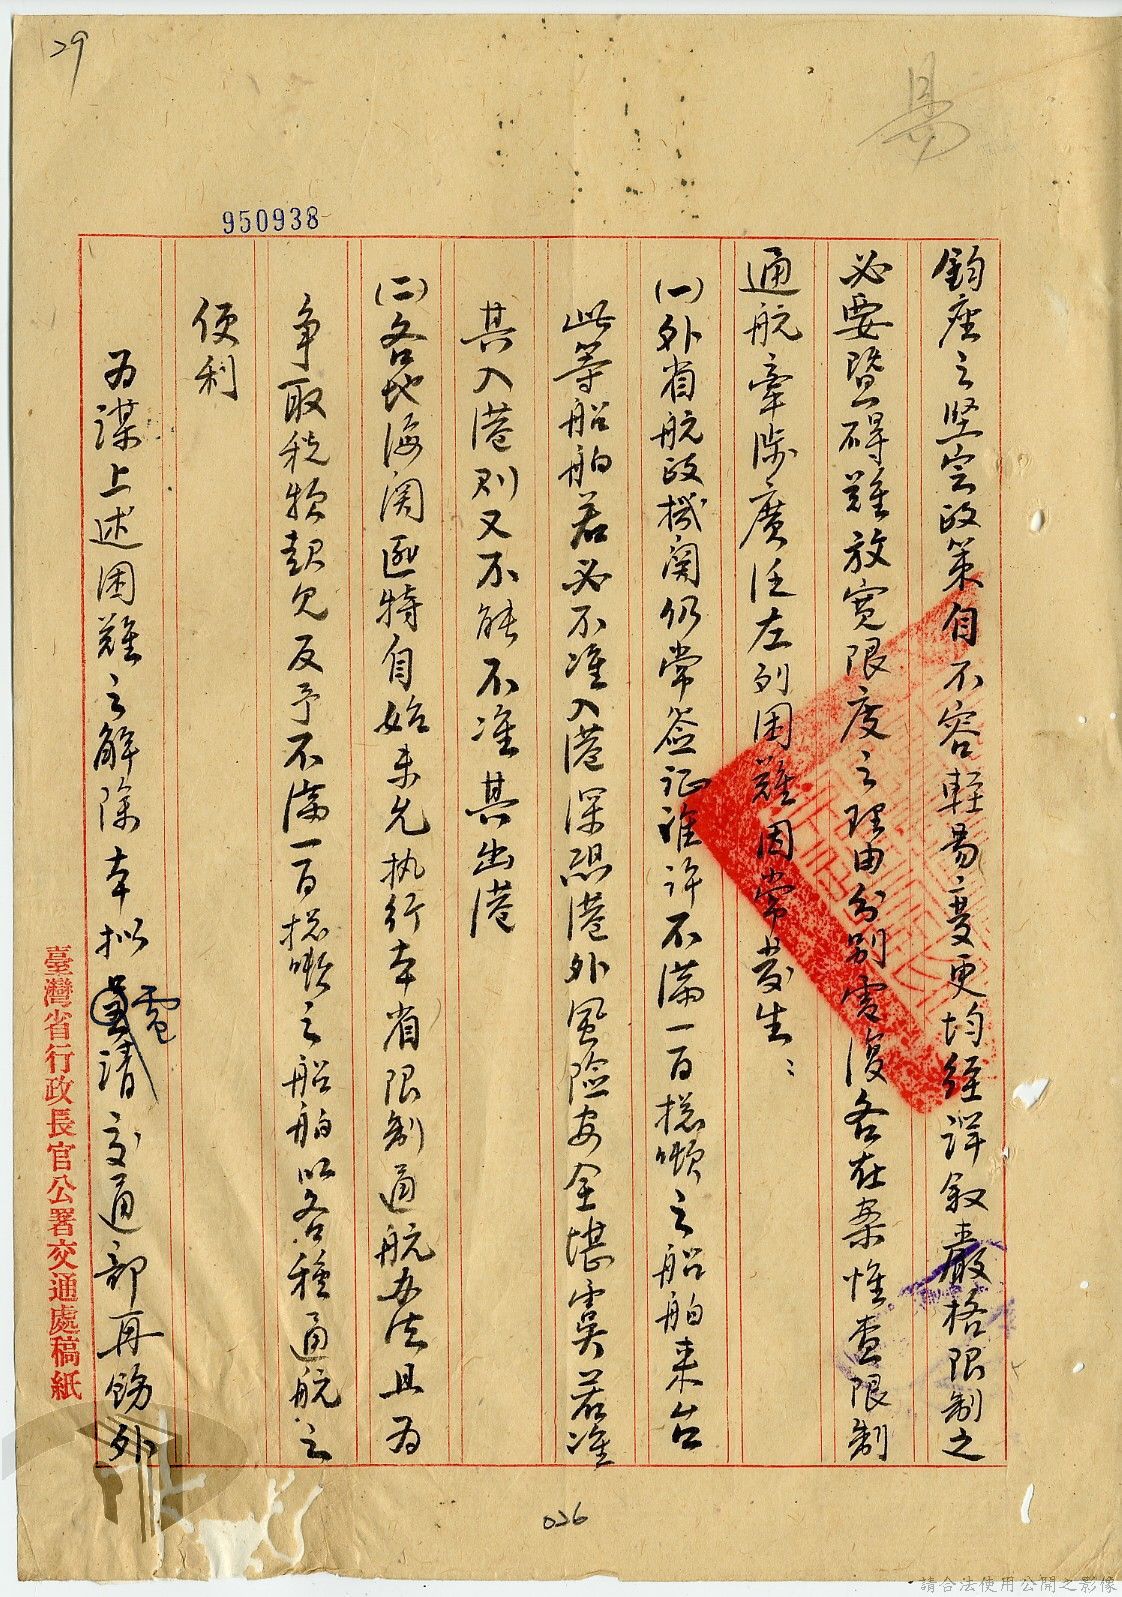 29
易
950938
鈞座之堅定政策自不容輕易變更均經詳敘嚴格限制之
必要暨碍難放寬限度之理由分别電復各在案惟查限制
通航牽涉廣泛左列困難因常發生：
(一)外省航政機関仍常簽証准許不滿一百總噸之船舶来台
此等船舶若必不准入港深恐港外風險安全堪虞若准
其入港則又不能不准其出港
(二)各地海関匪特自始未允执行本省限制通航办法且為
争取税款起見反予不滿一百總噸之船舶以各種通航之
便利
為謀上述困難之解除本拟電請交通部再飭外
臺灣省行政長官公署交通處稿紙
026
請合法使用公開之影像